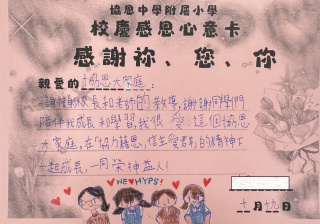 協恩中學附屬小學
校慶感恩心意卡
感謝祢、您、你
親愛的協恩大家庭:
謝謝校長和老師的教導,謝謝同學們
陪伴我成長和學習,我很愛這個協恩
大家庭,在「協力藉恩,信主愛群」的精神下
一起成長,一同榮神益人!
WE♥HYPS!
十月十九日